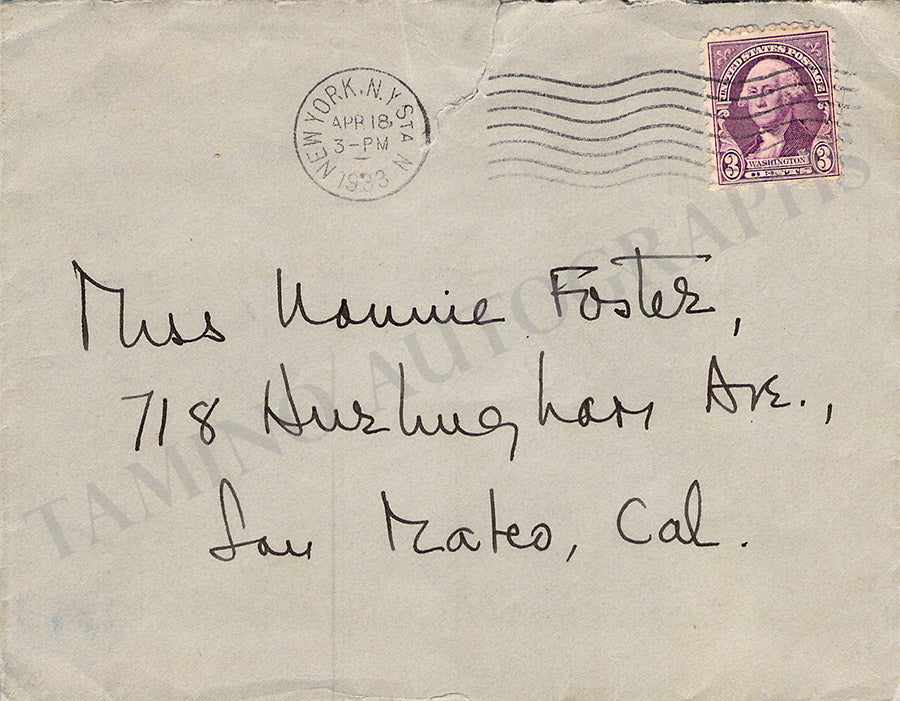 NEW YORK, N.Y. STA N
APR 18
3-PM
1933
UNITED STATES POSTAGE
3 WASHINGTON 3
CENTS
Miss Nannie Foster,
718 Hurlingham Ave.,
San Mateo, Cal.
TAMINO AUTOGRAPHS